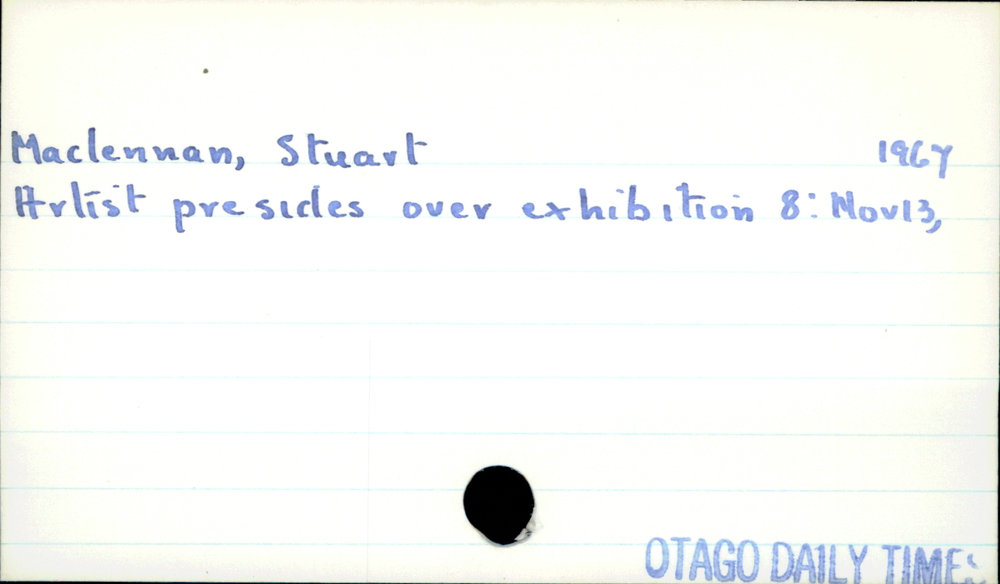 Maclennan, Stuart 1967
Artist presides over exhibition 8: Nov13,
OTAGO DAILY TIMES